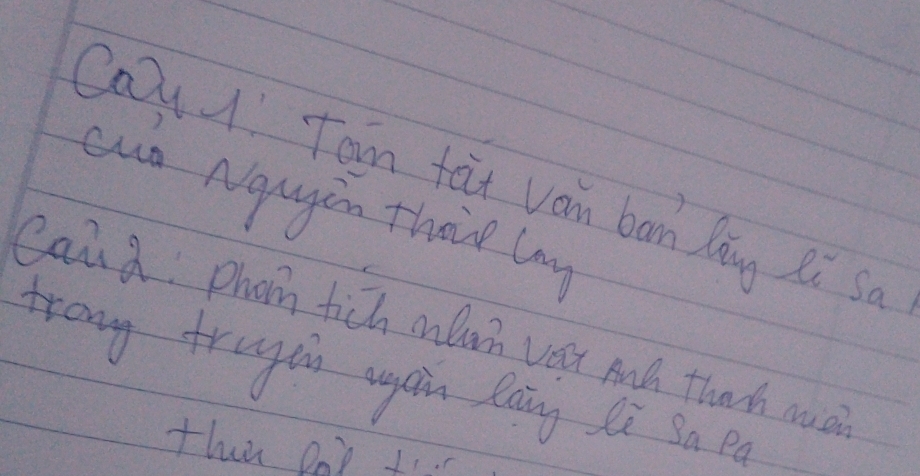 Câu 1: Tóm tắt văn bản lặng lẽ Sa
của Nguyễn Thành Long
Câu 2: Phân tích nhân vật Anh thanh niên
trong truyện ngắn lặng lẽ Sa Pa